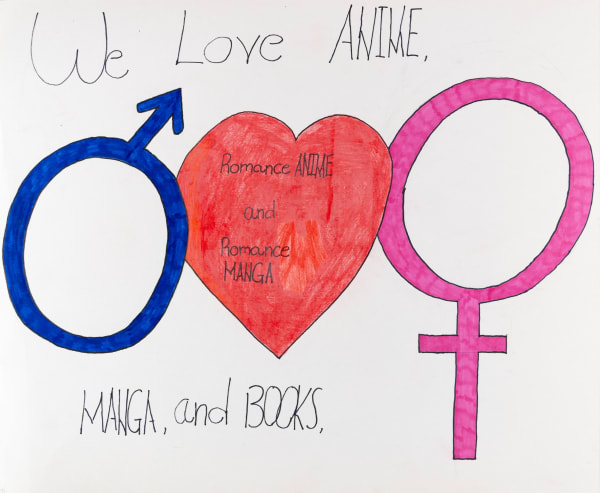 We Love ANIME,
Romance ANIME
and
Romance
MANGA
MANGA, and BOOKS,